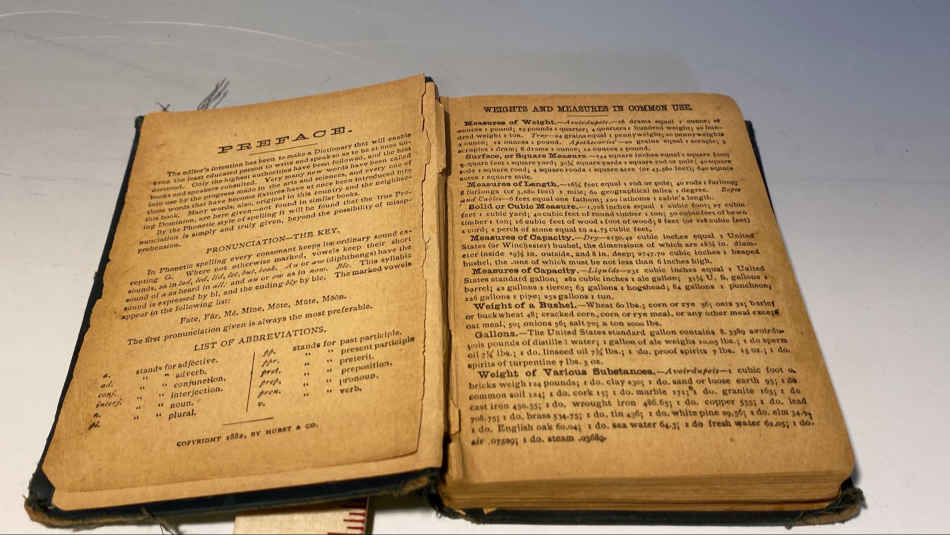 PREFACE.
The editor's intention has been to make a Dictionary that will enable
even the least educated to write and speak so as to be at once un-
derstood. Only the highest authorities have been followed, and the best
books and speakers consulted. Very many new words have been called
into use by the progress made in the arts and sciences, and every day
those words that have become familiar have at once been introduced into
this book. Many words, also, original in this country and the neighbor-
ing Dominion, are here given—not found in similar books.
By the Phonetic style of spelling it will be found that the true Pro-
nunciation is simply and truly given, beyond the possibility of misap-
prehension.
PRONUNCIATION—THE KEY.
In Phonetic spelling every consonant keeps its ordinary sound ex-
cepting G. Where not otherwise marked, vowels keep their short
sounds, as in lad, led, lid, lot, but, book. Au or aw (diphthongs) have the
sound of a as heard in all, and au or ow as in now. This syllabic
sound is expressed by bl, and the ending bly by ble. The marked vowels
appear in the following list:
Fate, Fär, Mé, Mine, Môte, Mute, Môôn.
The first pronunciation given is always the most preferable.
LIST OF ABBREVIATIONS.
a. stands for adjective.
ad. " " adverb.
conj. " " conjunction.
interj. " " interjection.
n. " " noun.
pl. " " plural.
pp. stands for past participle.
ppr. " " present participle
pret. " " preterit.
prep. " " preposition.
pron. " " pronoun.
v. " " verb.
COPYRIGHT 1882, BY HURST & CO.
WEIGHTS AND MEASURES IN COMMON USE.
Measures of Weight.—Avoirdupois.—16 drams equal 1 ounce; 16
ounces 1 pound; 25 pounds 1 quarter; 4 quarters 1 hundred weight; 20 hun-
dred weight 1 ton. Troy.—24 grains equal 1 pennyweight; 20 pennyweights
1 ounce; 12 ounces 1 pound. Apothecaries'—20 grains equal 1 scruple; 3
scruples 1 dram; 8 drams 1 ounce; 12 ounces 1 pound.
Surface, or Square Measure.—144 square inches equal 1 square foot;
9 square feet 1 square yard; 30¼ square yards 1 square rod or pole; 40 square
rods 1 square rood; 4 square roods 1 square acre (or 43,560 feet); 640 square
acres 1 square mile.
Measures of Length.—16½ feet equal 1 rod or pole; 40 rods 1 furlong;
8 furlongs (or 5,280 feet) 1 mile; 69 geographical miles 1 degree. Ropes
and Cables—6 feet equal one fathom; 120 fathoms 1 cable's length.
Solid or Cubic Measure.—1,728 inches equal 1 cubic foot; 27 cubic
feet 1 cubic yard; 40 cubic feet of round timber 1 ton; 50 cubic feet of hewn
timber 1 ton; 16 cubic feet of wood 1 foot of wood; 8 feet (or 128 cubic feet)
1 cord; 1 perch of stone equal to 24.75 cubic feet.
Measures of Capacity.—Dry—2150.42 cubic inches equal 1 United
States (or Winchester) bushel, the dimensions of which are 18½ in. diam-
eter inside 19½ in. outside, and 8 in. deep; 2747.70 cubic inches 1 heaped
bushel, the cone of which must be not less than 6 inches high.
Measures of Capacity.—Liquids—231 cubic inches equal 1 United
States standard gallon; 282 cubic inches 1 ale gallon; 31½ U. S. gallons 1
barrel; 42 gallons 1 tierce; 63 gallons 1 hogshead; 84 gallons 1 puncheon;
126 gallons 1 pipe; 252 gallons 1 tun.
Weight of a Bushel.—Wheat 60 lbs.; corn or rye 56; oats 32; barley
or buckwheat 48; cracked corn, corn or rye meal, or any other meal except
oat meal, 50; onions 56; salt 70; a ton 2000 lbs.
Gallons.—The United States standard gallon contains 8.3389 avoirdu-
pois pounds of distilled water; 1 gallon of ale weighs 10.05 lbs.; 1 do sperm
oil 7¼ lbs.; 1 do. linseed oil 7¾ lbs.; 1 do. proof spirits 7 lbs. 15 oz.; 1 do.
spirits of turpentine 7 lbs. 5 oz.
Weight of Various Substances.—Avoirdupois—1 cubic foot of
bricks weigh 124 pounds; 1 do. clay 130; 1 do. sand or loose earth 95; 1 do.
common soil 124; 1 do. cork 15; 1 do. marble 171; 1 do. granite 165; 1 do.
cast iron 450.55; 1 do. wrought iron 486.65; 1 do. copper 555; 1 do. lead
708.75; 1 do. brass 534.75; 1 do. tin 456; 1 do. white pine 29.56; 1 do. elm
1 do. English oak 60.04; 1 do. sea water 64.3; 1 do fresh water 62.05; 1 do.
air .07529; 1 do. steam .03689.